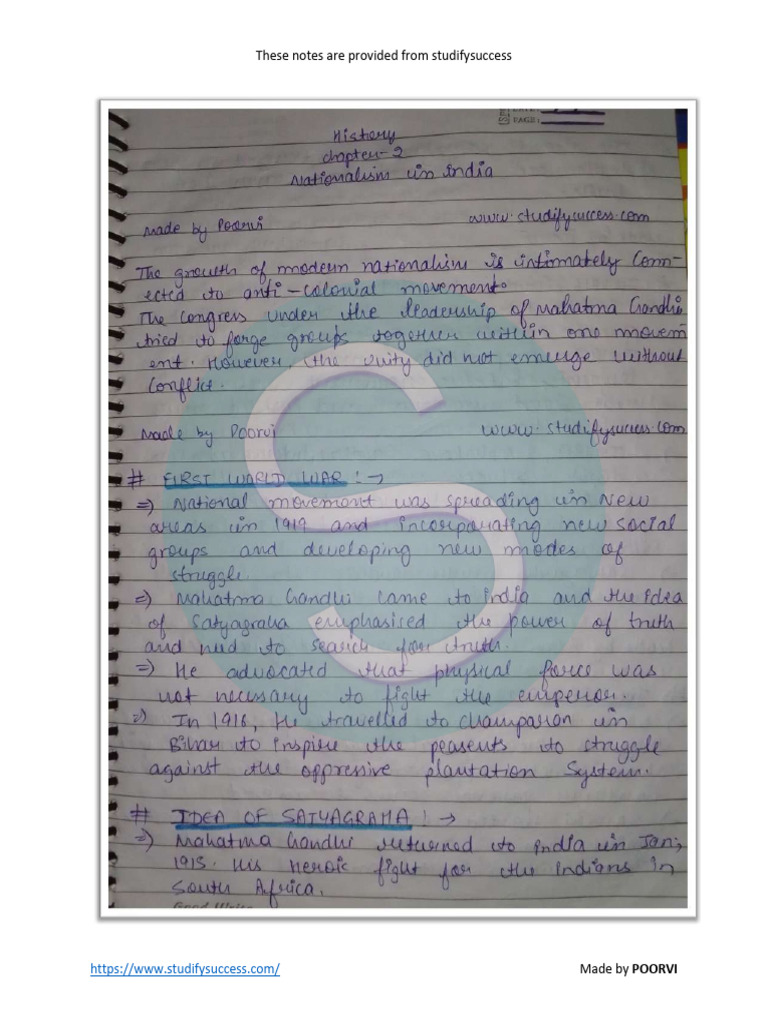 These notes are provided from studifysuccess
PAGE:
History
chapter-2
Nationalism in india
Made by Poorvi www.studifysuccess.com
The growth of modern nationalism is intimately conn-
ected to anti-colonial movement.
The congress under the leadership of Mahatma Gandhi
tried to forge groups together within one movem
ent. However, the unity did not emerge without
Conflict.
Made by Poorvi www.studifysuccess.com
# FIRST WORLD WAR :→
⇒ National movement was spreading in New
areas in 1919 and incorporating new social
groups and developing new modes of
struggle.
⇒ Mahatma Gandhi came to india and the idea
of Satyagraha emphasised the power of truth
and need to search for truth.
⇒ He advocated that physical force was
not necessary to fight the emperior.
⇒ In 1916, He travelled to champaran in
Bihar to inspire the peasents to struggle
against the oppresive plantation System.
# IDEA OF SATYAGRAHA :→
⇒ Mahatma Gandhi returned to india in Jan;
1915. His heroic fight for the indians in
South Africa.
https://www.studifysuccess.com/ Made by POORVI